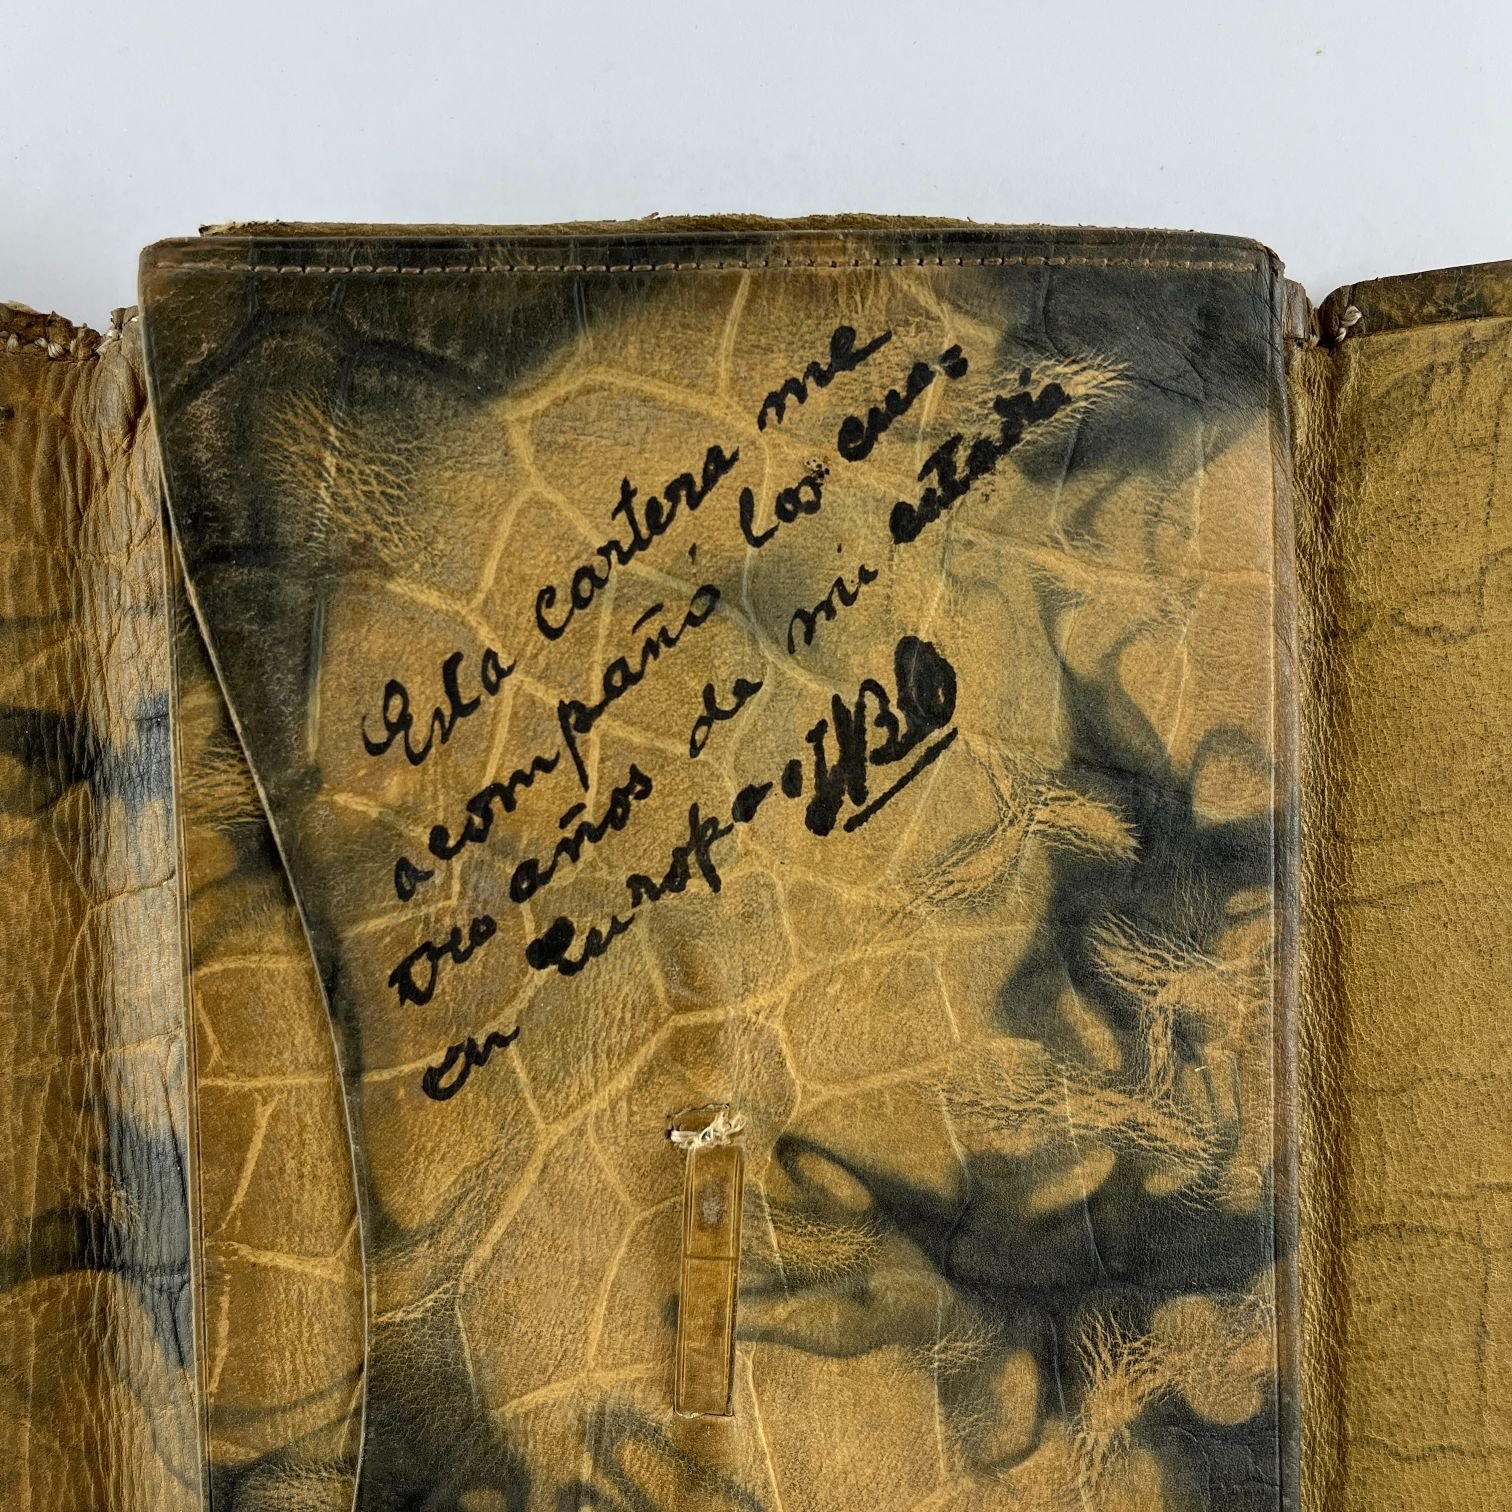 Esta cartera me
acompañó los cua-
tro años de mi estadía
en Europa.